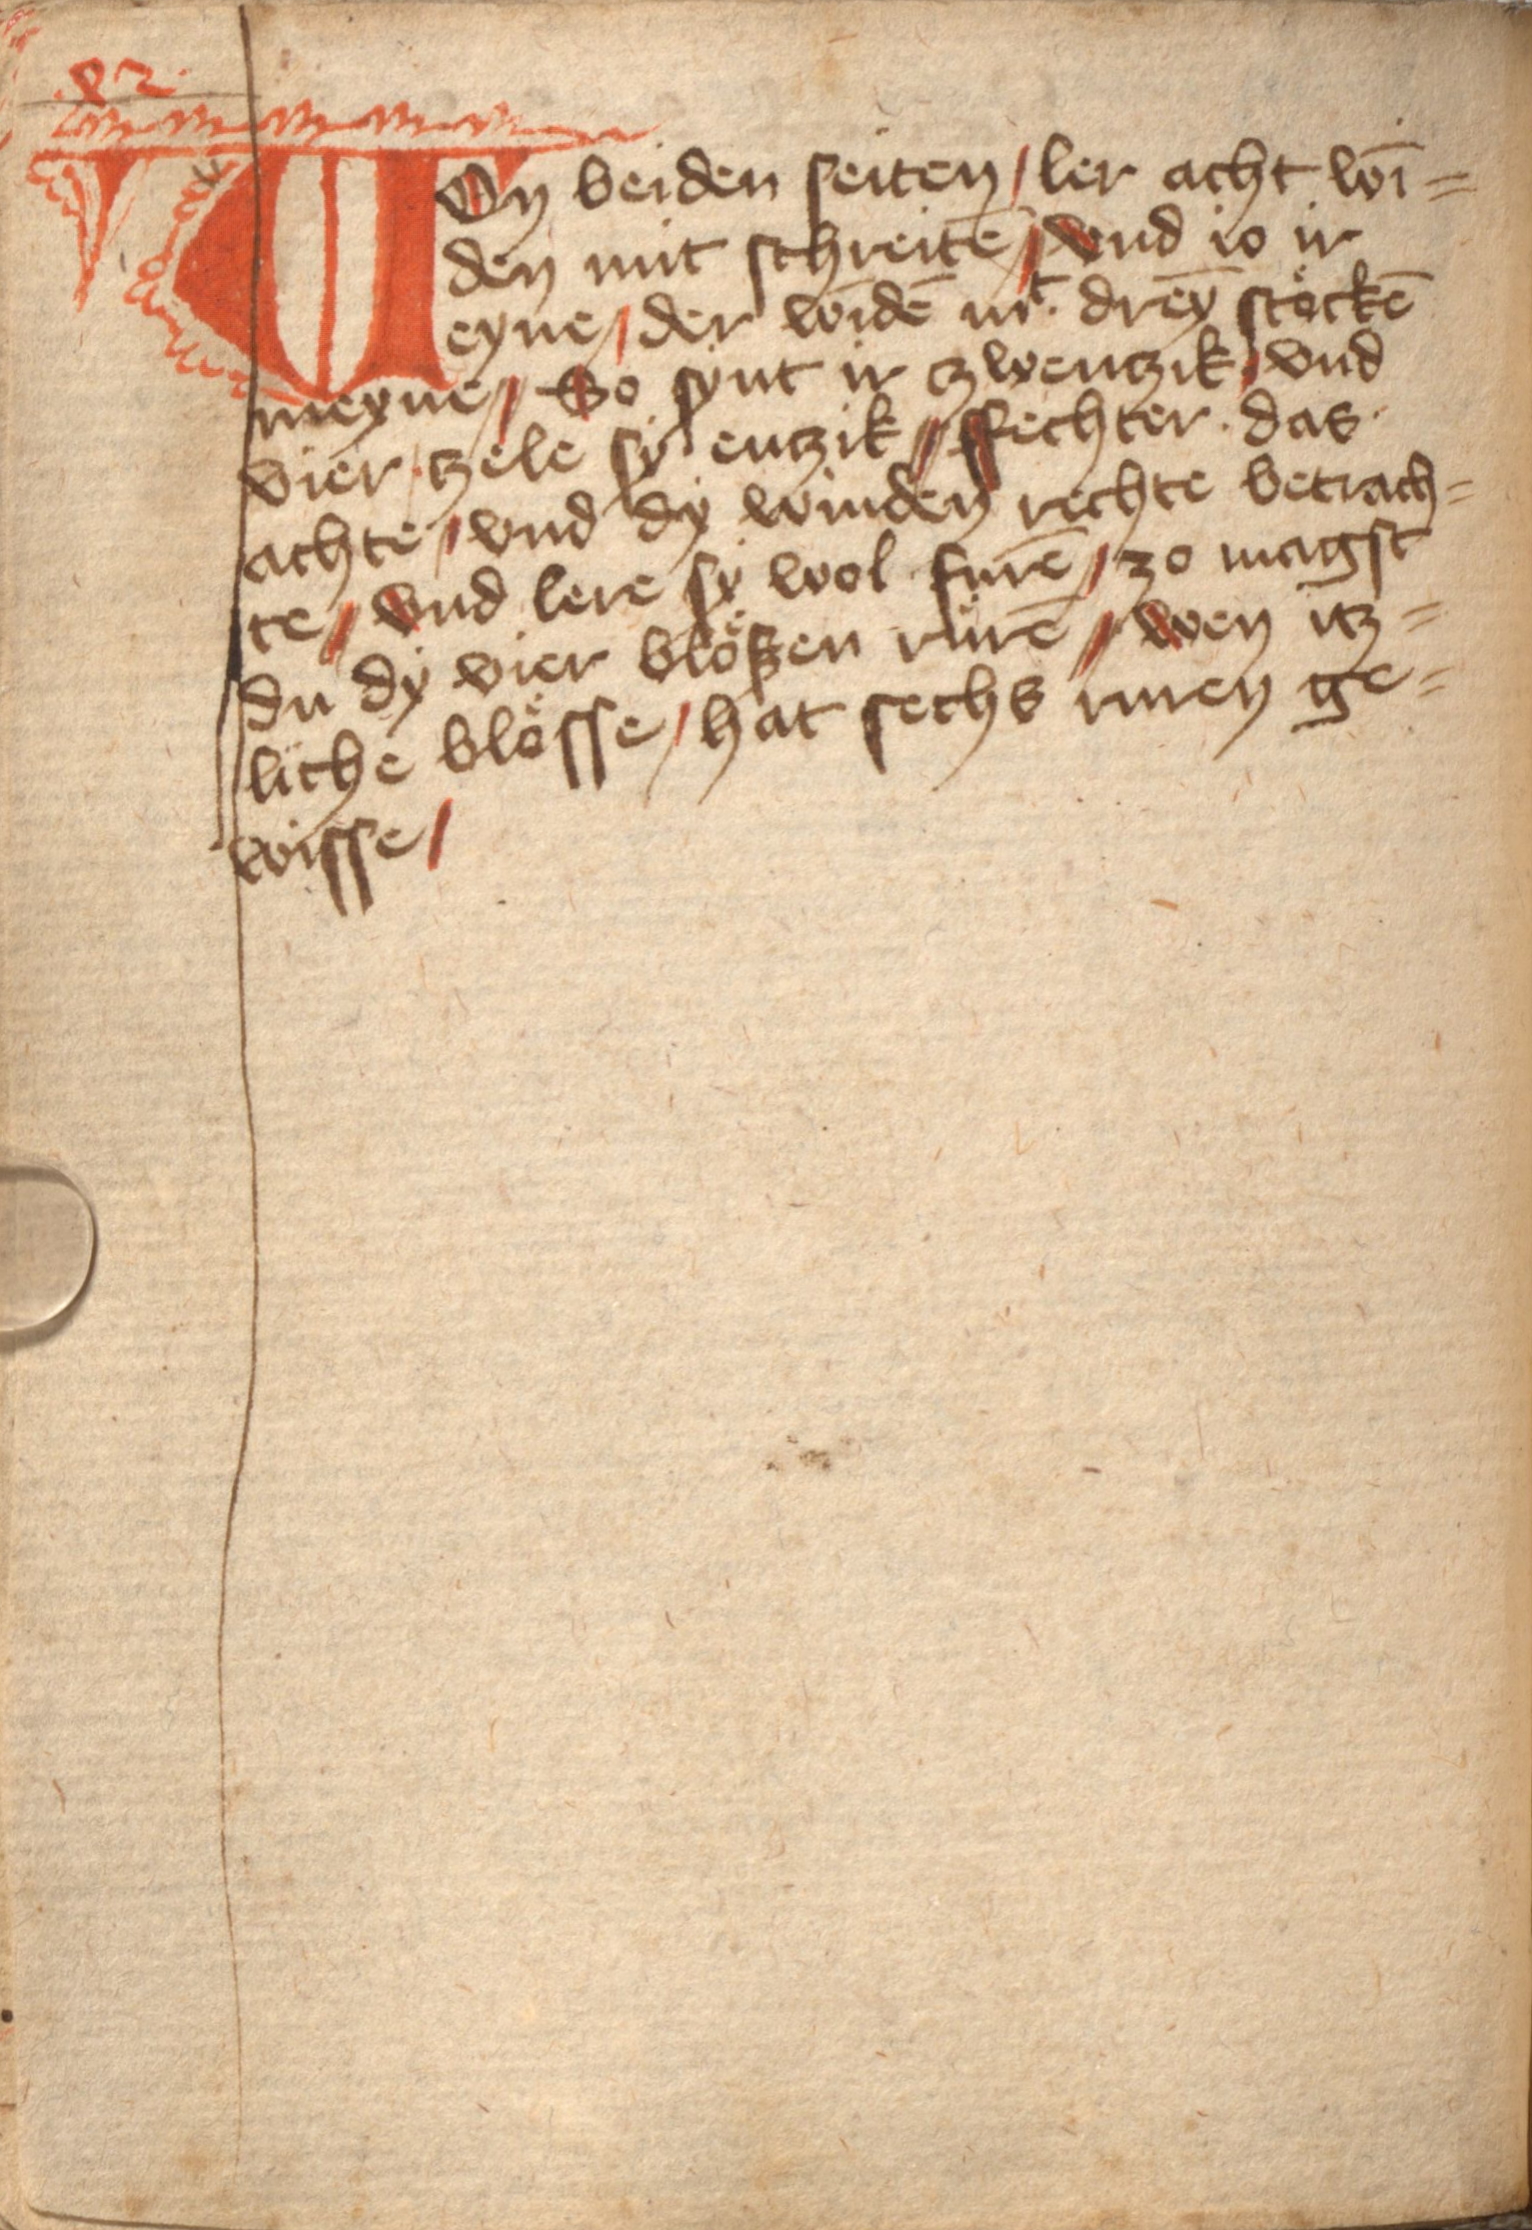 .82.
VOn beiden seiten / ler acht wī=
den mit schreitē // vnd io ir
eyne / der wīdē mᵗ. dreȳ stöckē
meyne // So sÿnt ir czwenczik / vnd
vier · czele sÿ enczik // ffechter · das ·
achte / vnd dÿ winden rechte betrach=
te // vnd lere sÿ wol furē / zo magst
du dÿ vier blößen rürē // wen itz=
liche blösse / hat sechs ruren ge=
wisse /